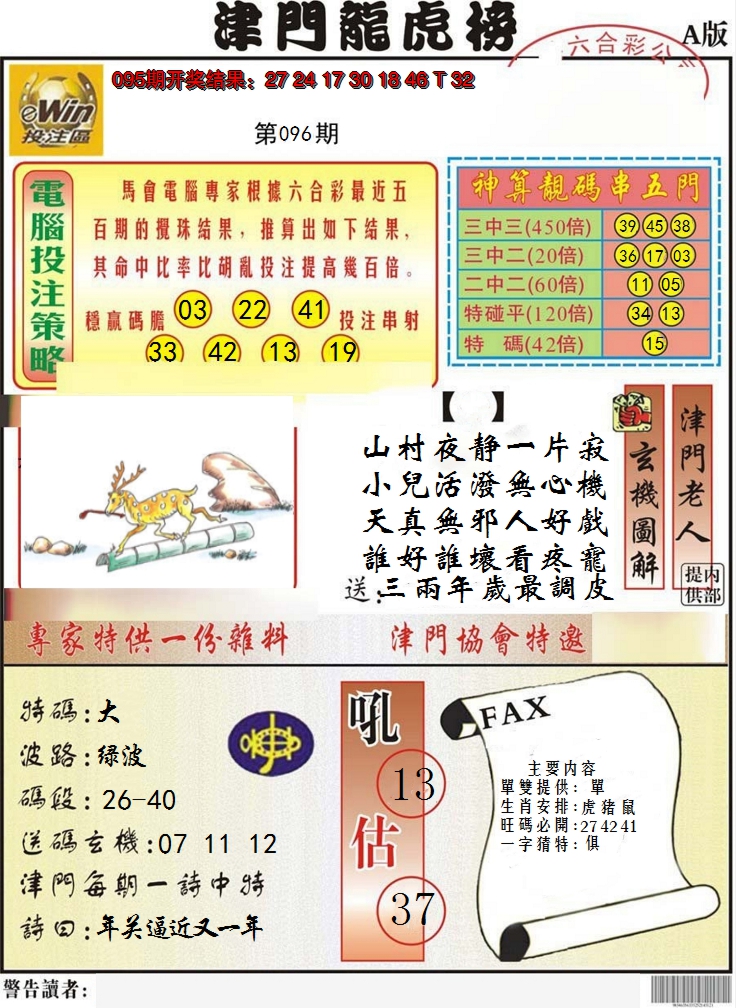 津門龍虎榜
A版
六合彩公
eWin
投注區
095期开奖结果：27 24 17 30 18 46 T 32
第096期
電腦投注策略
馬會電腦專家根據六合彩最近五
百期的攪珠结果，推算出如下结果，
其命中比率比胡亂投注提高幾百倍。
穩贏碼膽 03 22 41 投注串射
33 42 13 19
神算靚碼串五門
三中三(450倍) 39 45 38
三中二(20倍) 36 17 03
二中二(60倍) 11 05
特碰平(120倍) 34 13
特 碼(42倍) 15
【 】
山村夜静一片寂
小兒活潑無心機
天真無邪人好戲
誰好誰壞看疼寵
送：三兩年歲最調皮
玄機圖解
津門老人
内部提供
專家特供一份雜料
津門協會特邀
特碼：大
波路：绿波
碼段：26-40
送碼玄機：07 11 12
津門每期一詩中特
詩曰：年关逼近又一年
吼
13
估
37
FAX
主要内容
單雙提供：單
生肖安排：虎猪鼠
旺碼必開：27 42 41
一字猜特：俱
警告讀者：